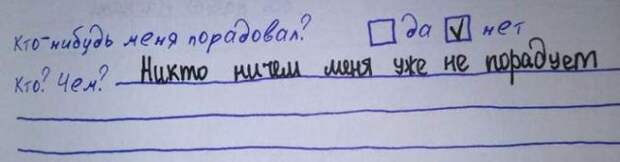 Кто-нибудь меня порадовал? да нет
Кто? Чем? Никто ничем меня уже не порадует